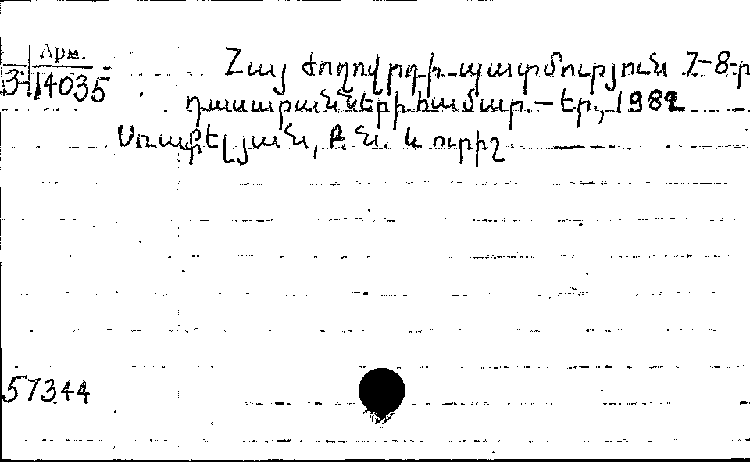 Արм.
3-14035
Հայ ժողովրդի պատմություն 7-8-ր
դասարանների համար.- Եր., 1982
Առաքելյան, Բ. Ն. և ուրիշ
57344